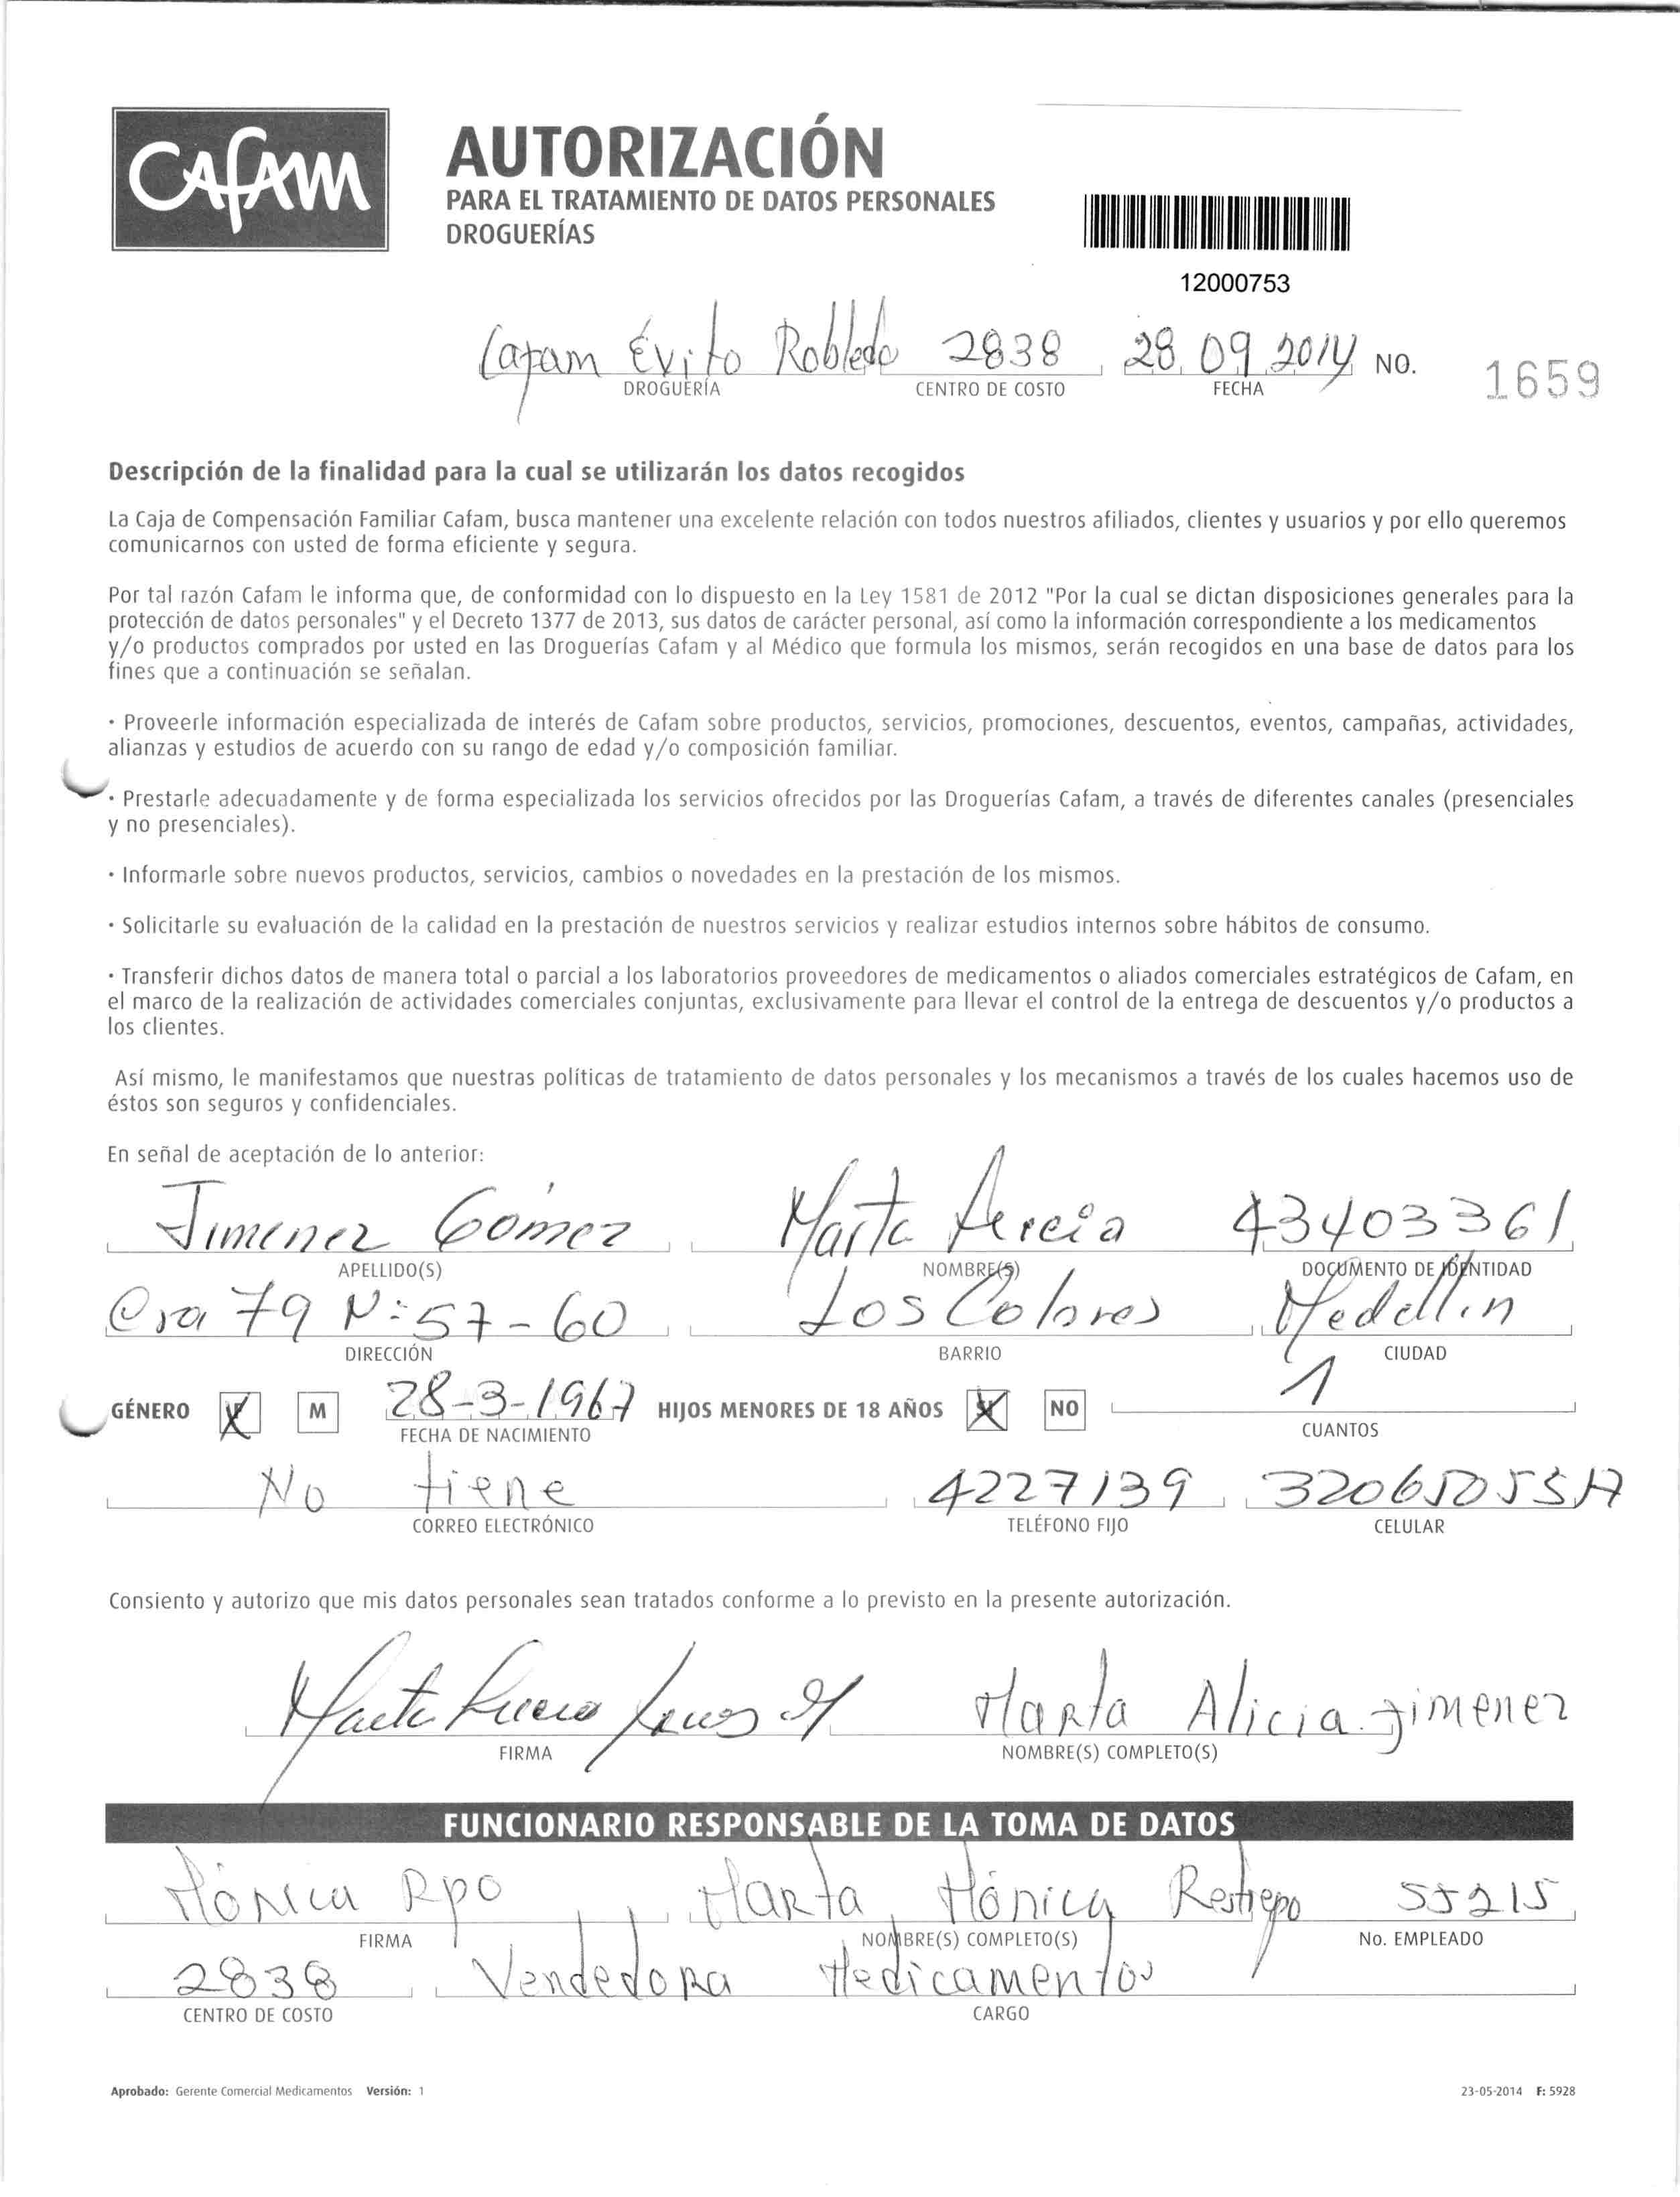 Cafam
AUTORIZACIÓN
PARA EL TRATAMIENTO DE DATOS PERSONALES
DROGUERÍAS
12000753
Cafam Éxito Robledo 2838 28 09 2014 NO. 1659
DROGUERÍA CENTRO DE COSTO FECHA
Descripción de la finalidad para la cual se utilizarán los datos recogidos
La Caja de Compensación Familiar Cafam, busca mantener una excelente relación con todos nuestros afiliados, clientes y usuarios y por ello queremos
comunicarnos con usted de forma eficiente y segura.
Por tal razón Cafam le informa que, de conformidad con lo dispuesto en la Ley 1581 de 2012 "Por la cual se dictan disposiciones generales para la
protección de datos personales" y el Decreto 1377 de 2013, sus datos de carácter personal, así como la información correspondiente a los medicamentos
y/o productos comprados por usted en las Droguerías Cafam y al Médico que formula los mismos, serán recogidos en una base de datos para los
fines que a continuación se señalan.
· Proveerle información especializada de interés de Cafam sobre productos, servicios, promociones, descuentos, eventos, campañas, actividades,
alianzas y estudios de acuerdo con su rango de edad y/o composición familiar.
· Prestarle adecuadamente y de forma especializada los servicios ofrecidos por las Droguerías Cafam, a través de diferentes canales (presenciales
y no presenciales).
· Informarle sobre nuevos productos, servicios, cambios o novedades en la prestación de los mismos.
· Solicitarle su evaluación de la calidad en la prestación de nuestros servicios y realizar estudios internos sobre hábitos de consumo.
· Transferir dichos datos de manera total o parcial a los laboratorios proveedores de medicamentos o aliados comerciales estratégicos de Cafam, en
el marco de la realización de actividades comerciales conjuntas, exclusivamente para llevar el control de la entrega de descuentos y/o productos a
los clientes.
Así mismo, le manifestamos que nuestras políticas de tratamiento de datos personales y los mecanismos a través de los cuales hacemos uso de
éstos son seguros y confidenciales.
En señal de aceptación de lo anterior:
Jimenez Gómez Marta 43403361
APELLIDO(S) NOMBRE(S) DOCUMENTO DE IDENTIDAD
Cra 79 N: 57-60 Los Colores Medellin
DIRECCIÓN BARRIO CIUDAD
GÉNERO M 28-3-1967 HIJOS MENORES DE 18 AÑOS NO 1
FECHA DE NACIMIENTO CUANTOS
No tiene 4227139
CORREO ELECTRÓNICO TELÉFONO FIJO CELULAR
Consiento y autorizo que mis datos personales sean tratados conforme a lo previsto en la presente autorización.
Marta Alicia Jimenez
FIRMA NOMBRE(S) COMPLETO(S)
FUNCIONARIO RESPONSABLE DE LA TOMA DE DATOS
Mónica Rpo Marta Mónica Restrepo 55215
FIRMA NOMBRE(S) COMPLETO(S) No. EMPLEADO
2838 Vendedora Medicamentos
CENTRO DE COSTO CARGO
Aprobado: Gerente Comercial Medicamentos Versión: 1 23-05-2014 F: 5928